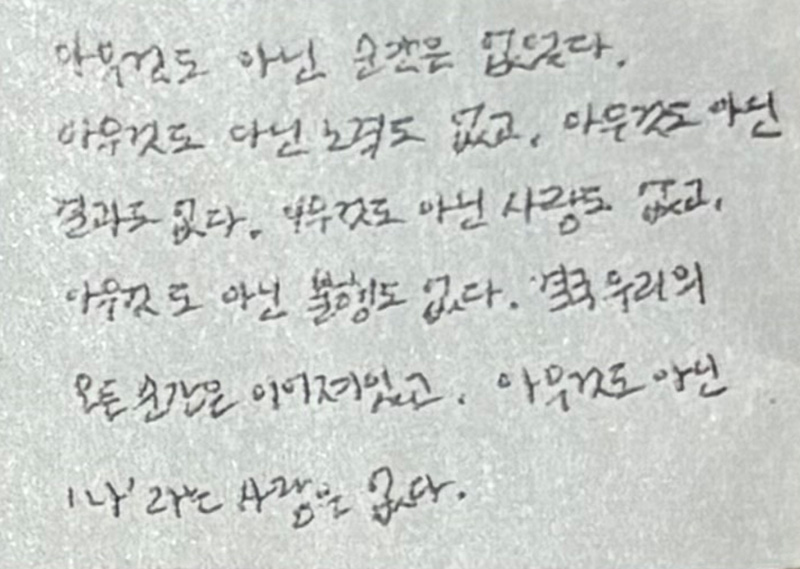 아무것도 아닌 순간은 없었다.
아무것도 아닌 노력도 없고, 아무것도 아닌
결과도 없다. 아무것도 아닌 사랑도 없고,
아무것도 아닌 불행도 없다. 결국 우리의
모든 순간은 이어져있고, 아무것도 아닌
'나'라는 사람은 없다.